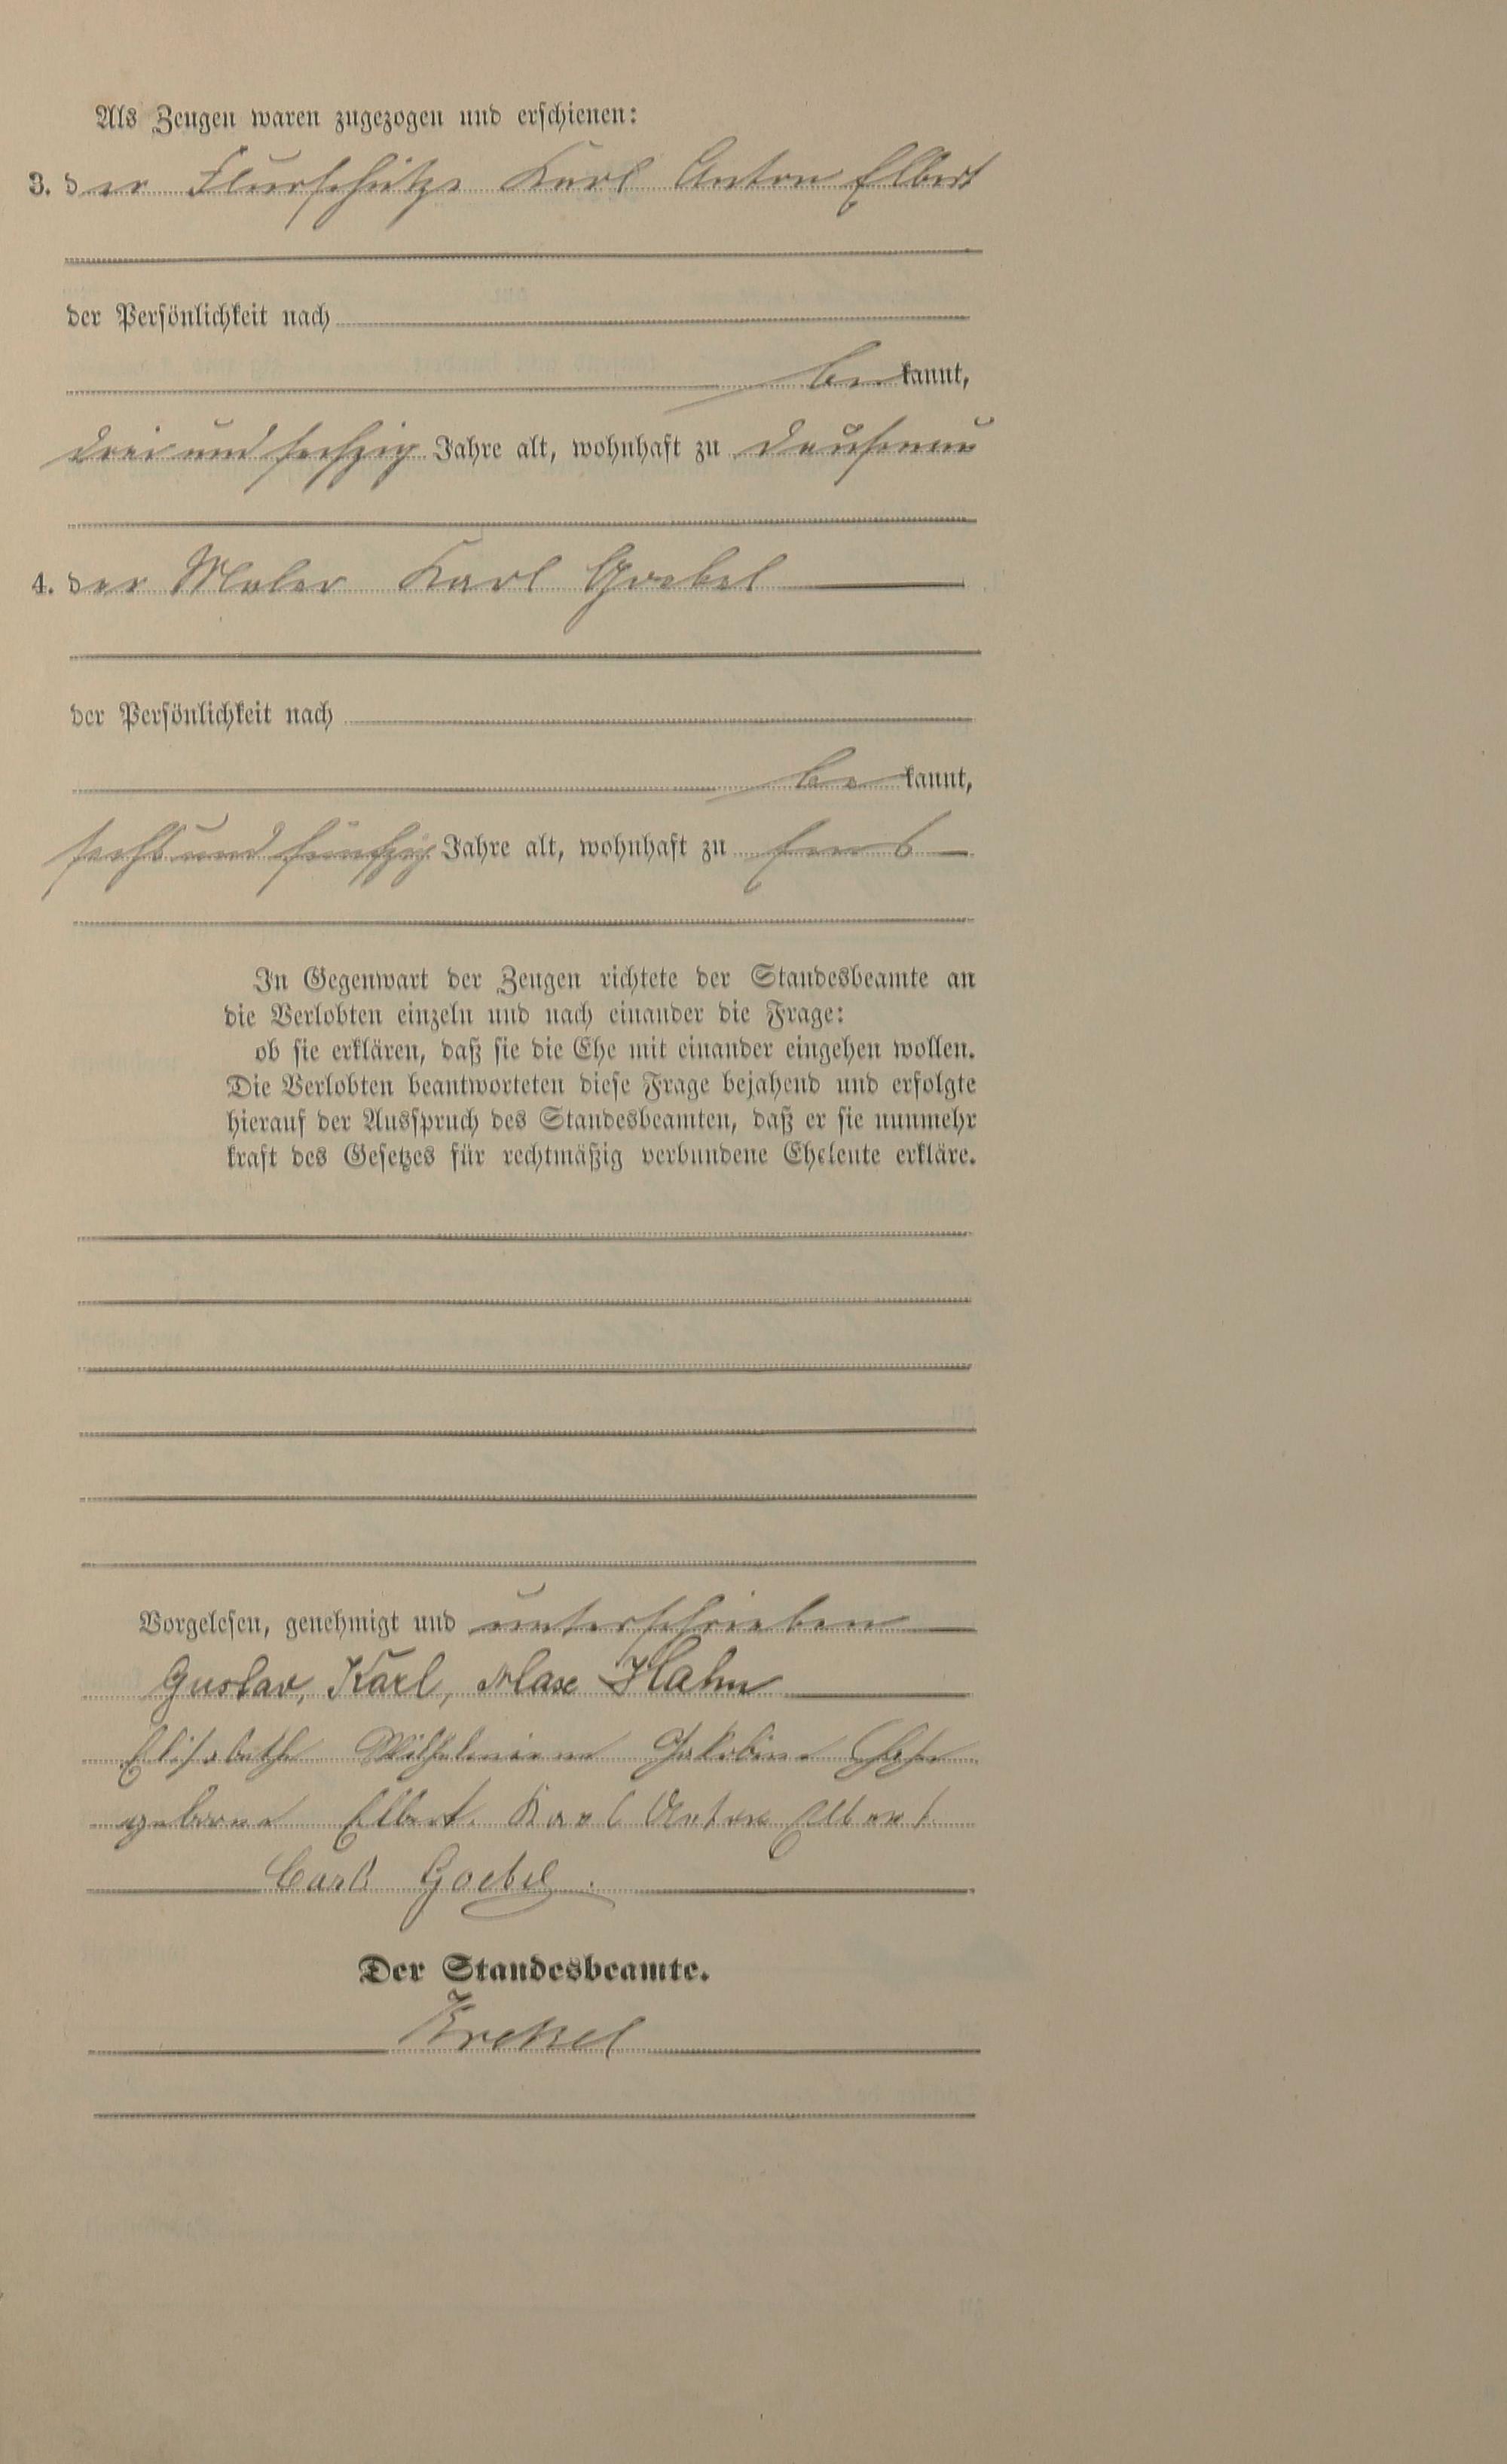 Als Zeugen waren zugezogen und erschienen:
3. der Flurschütze Karl Anton Elbert
der Persönlichkeit nach
bekannt,
drei und sechzig Jahre alt, wohnhaft zu Dausenau
4. der Maler Karl Goebel
der Persönlichkeit nach
bekannt,
sechs und fünfzig Jahre alt, wohnhaft zu Ems
In Gegenwart der Zeugen richtete der Standesbeamte an
die Verlobten einzeln und nach einander die Frage:
ob sie erklären, daß sie die Ehe mit einander eingehen wollen.
Die Verlobten beantworteten diese Frage bejahend und erfolgte
hierauf der Ausspruch des Standesbeamten, daß er sie nunmehr
kraft des Gesetzes für rechtmäßig verbundene Eheleute erkläre.
Vorgelesen, genehmigt und unterschrieben
Gustav, Karl, Max Hahn
Elisabethe Wilhelmine Jakobine
geborene Elbert. Karl Anton Elbert
Carl Goebel.
Der Standesbeamte.